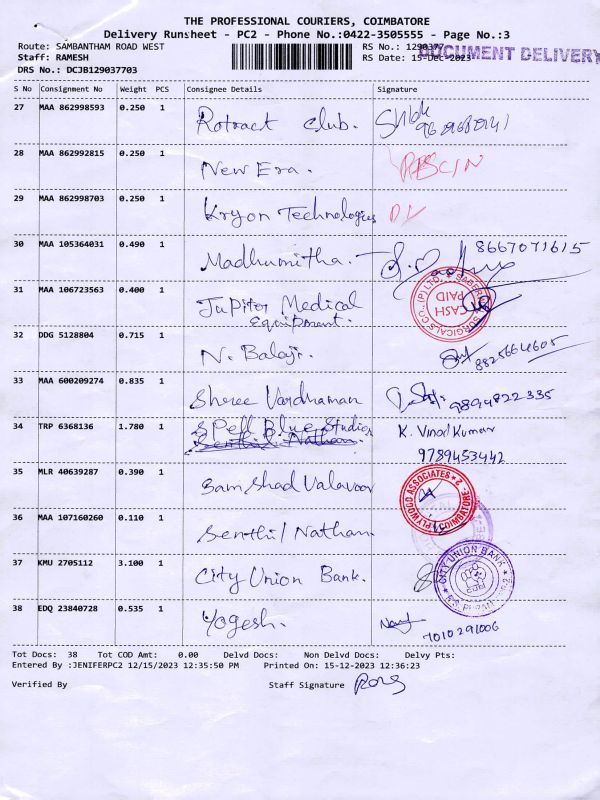 THE PROFESSIONAL COURIERS, COIMBATORE
Delivery Runsheet - PC2 - Phone No.:0422-3505555 - Page No.:3
Route: SAMBANTHAM ROAD WEST RS No.: 1290377
DOCUMENT DELIVERY
Staff: RAMESH RS Date: 15-Dec-2023
DRS No.: DCJB129037703
S No Consignment No Weight PCS Consignee Details Signature
27 MAA 862998593 0.250 1 Rotract club.
28 MAA 862992815 0.250 1 New Era.
29 MAA 862998703 0.250 1 Kryon Technologies
30 MAA 105364031 0.490 1 Madhumitha. 8667071615
31 MAA 106723563 0.400 1 Jupitor Medical
Equipment.
SURGICALS CO., (P) LTD.
CASH
PAID
32 DDG 5128804 0.715 1 N. Balaji. 8825664605
33 MAA 600209274 0.835 1 Shree Vardhaman 9894822335
34 TRP 6368136 1.780 1 Spell Blue Studios K. Vinod Kumar
Senthil Nathan. 9789453442
35 MLR 40639287 0.390 1 Sam Shad Valavoor
PLYWOOD ASSOCIATES COIMBATORE-2
36 MAA 107160260 0.110 1 Senthil Nathan.
37 KMU 2705112 3.100 1 City Union Bank.
CITY UNION BANK
38 EDQ 23840728 0.535 1 Yogesh.
7010291006
Tot Docs: 38 Tot COD Amt: 0.00 Delvd Docs: Non Delvd Docs: Delvy Pts:
Entered By :JENIFERPC2 12/15/2023 12:35:50 PM Printed On: 15-12-2023 12:36:23
Verified By Staff Signature